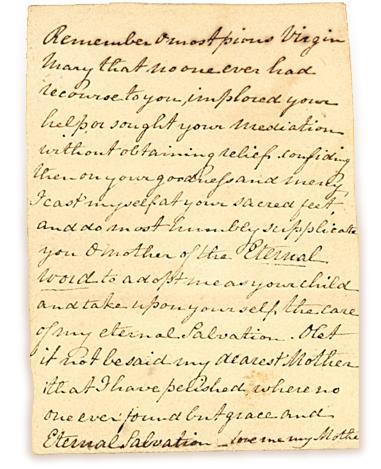 Remember o most pious Virgin
Mary that no one ever had
recourse to you, implored your
help or sought your mediation
without obtaining relief. confiding
then on your goodness and mercy
I cast myself at your sacred feet,
and do most humbly supplicate
you o mother of the Eternal
word to adopt me as your child
and take upon yourself the care
of my eternal Salvation. O let
it not be said my dearest Mother
that I have perished, where no
one ever found but grace and
Eternal Salvation _ love me my Mothe